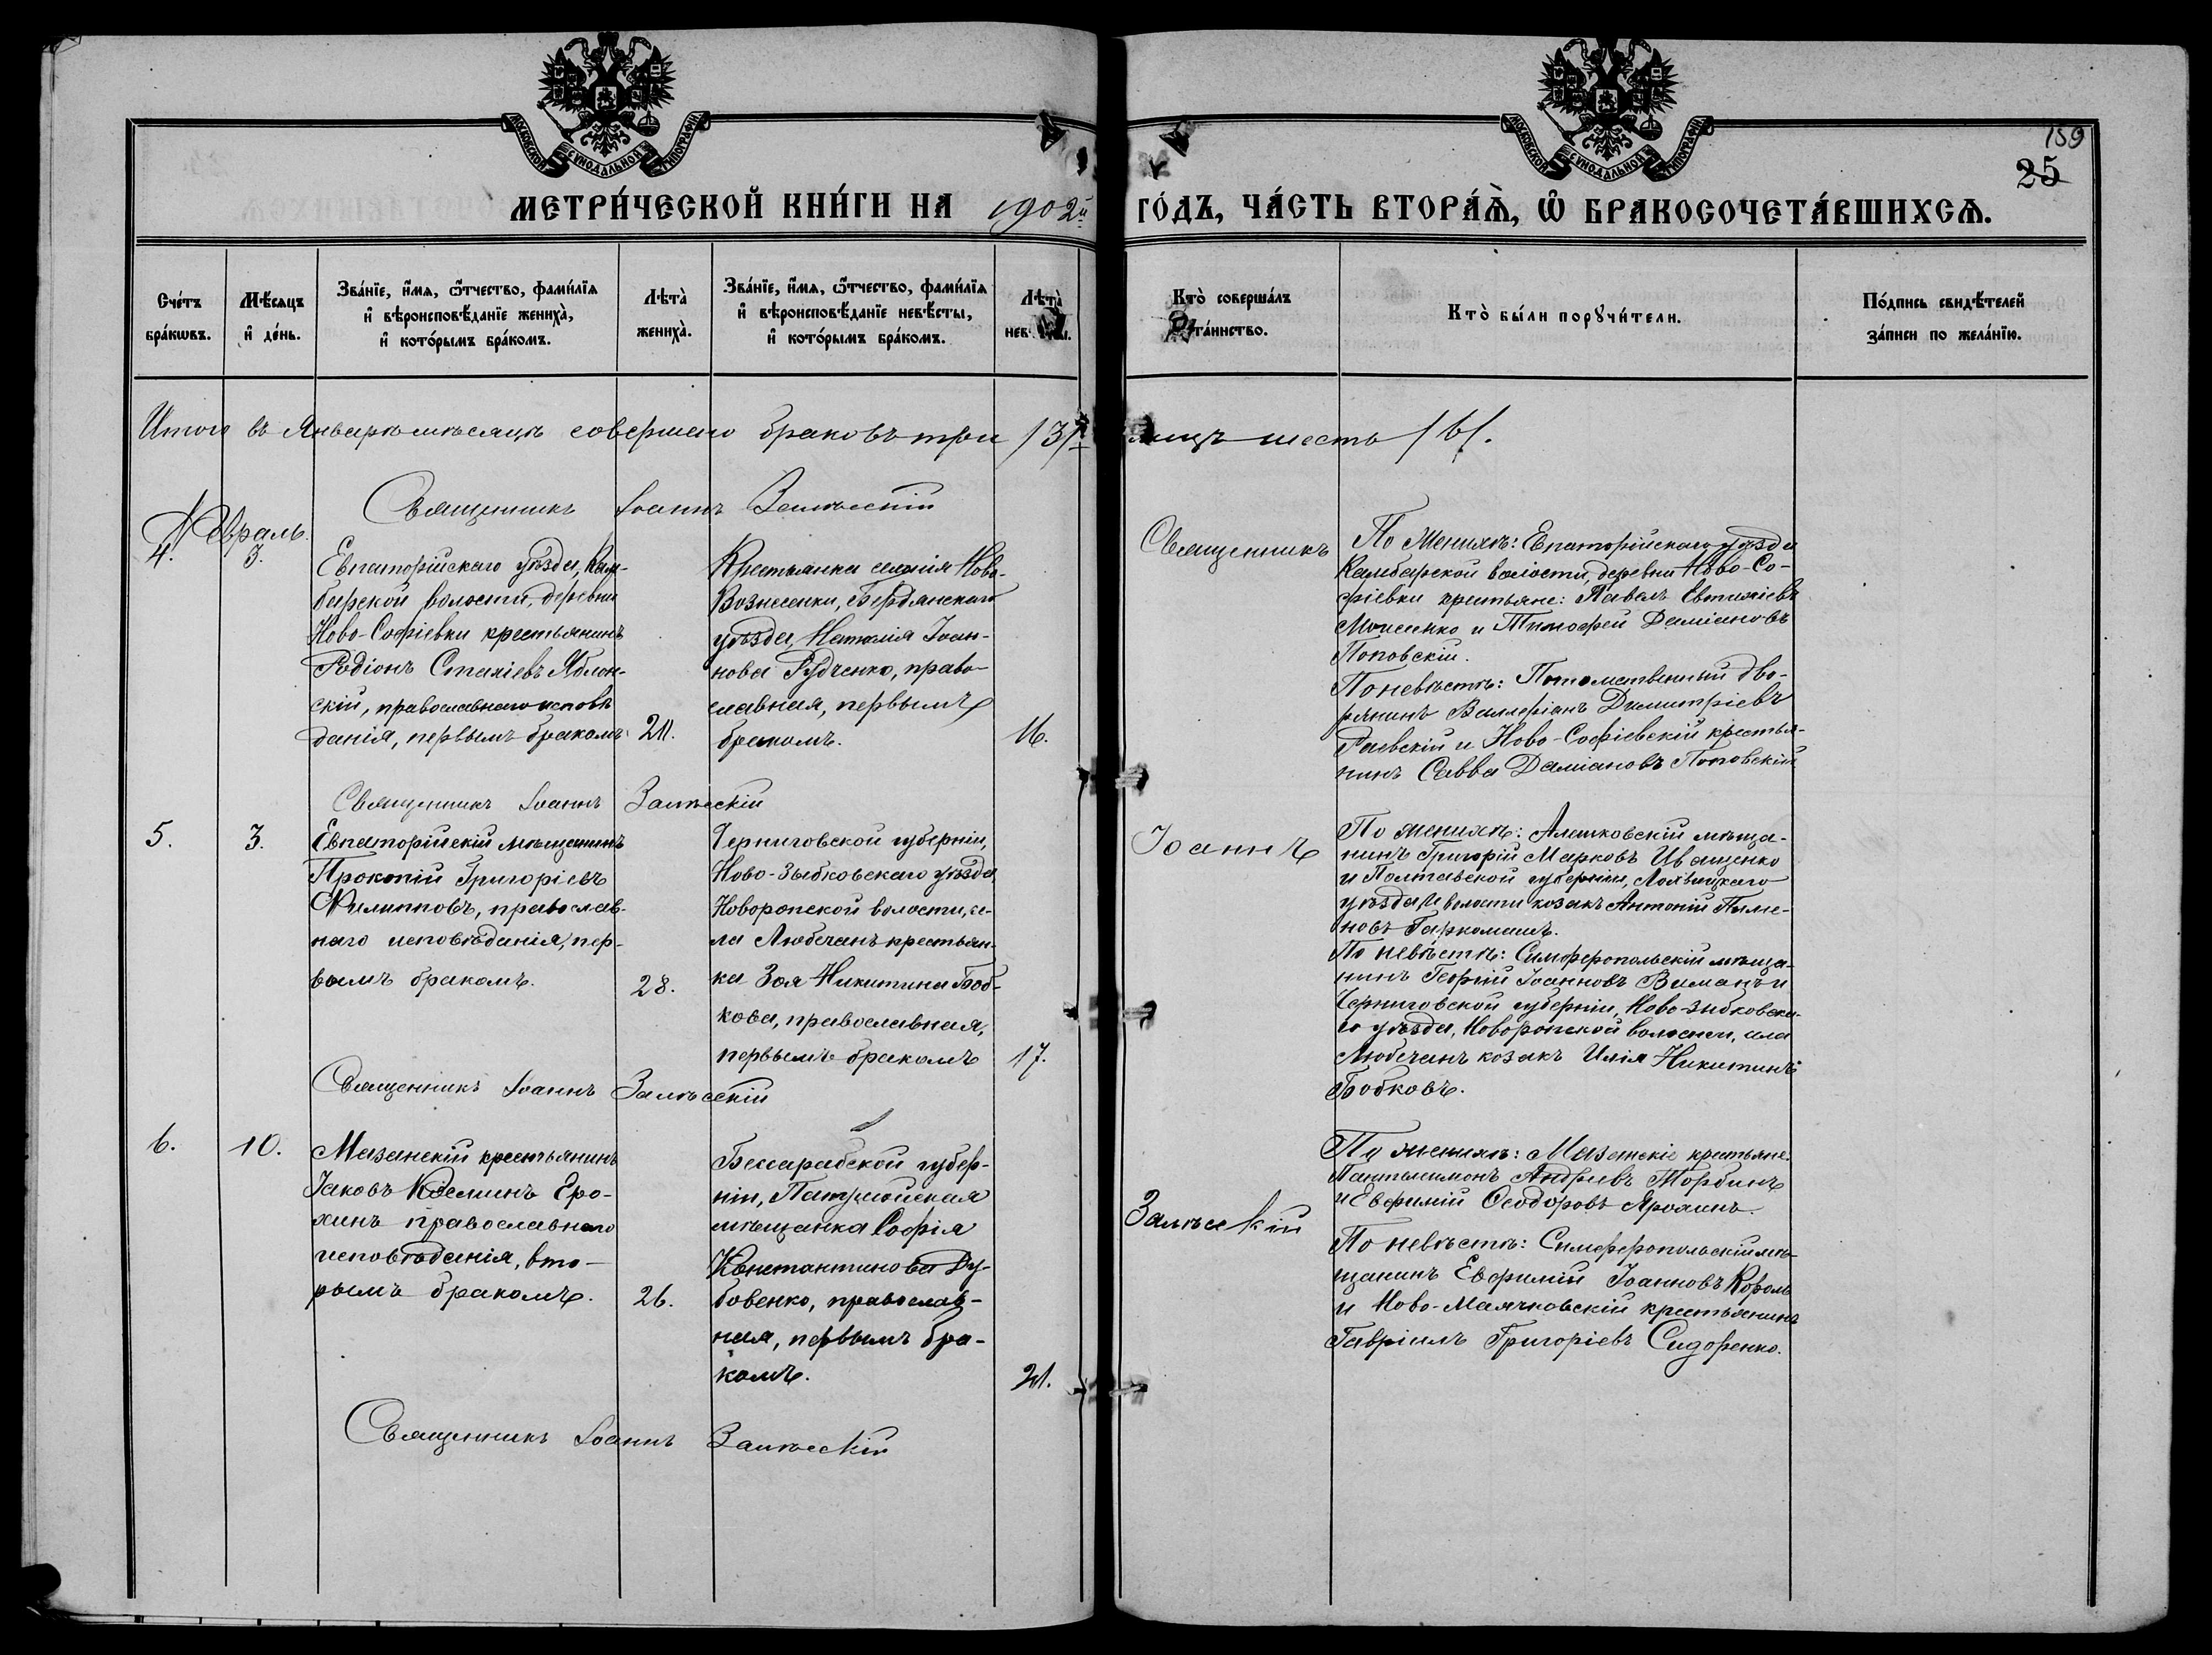 МОСКОВСКОЙ СѴНОДАЛЬНОЙ ТИПОГРАФІИ
МОСКОВСКОЙ СѴНОДАЛЬНОЙ ТИПОГРАФІИ
159
25
МЕТРИ́ЧЕСКОЙ КНИ́ГИ НА 1902й ГО́ДЪ, ЧА́СТЬ ВТОРА́Ѧ, Ѡ БРАКОСОЧЕТА́ВШИХСѦ.
Сче́тъ бра́кѡвъ.
Мѣ́сяцъ и҆ де́нь.
Зва́нїе, и҆́мѧ, ѻ҆́тчество, фами́лїѧ и҆ вѣроисповѣ́данїе жениха̀, и҆ кото́рымъ бра́комъ.
Лѣта̀ жениха̀.
Зва́нїе, и҆́мѧ, ѻ҆́тчество, фами́лїѧ и҆ вѣроисповѣ́данїе невѣ́сты, и҆ кото́рымъ бра́комъ.
Лѣта̀ нев ты.
Кто̀ соверша́лъ та́инство.
Кто̀ бы́ли порꙋчи́тели.
По́дпись свидѣ́телей за́писи по жела́нїю.
Итого въ Январѣ мѣсяцѣ совершено браковъ три /3/ лицъ шесть /6/.
Священникъ Іоаннъ Залѣсскій
Февраль.
4.
3.
Евпаторійскаго уѣзда, Кам-
барской волости, деревни
Ново-Софіевки крестьянинъ
Родіонъ Стахіевъ Яблон-
скій, православнаго исповѣ
данія, первымъ бракомъ
21.
Крестьянка селенія Ново-
Вознесенки, Бердянскаго
уѣзда, Наталія Іоан-
нова Рудченко, право-
славная, первымъ
бракомъ.
16.
Священникъ
По женихѣ: Евпаторійскаго уѣзда
Камбарской волости, деревни Ново-Со-
фіевки крестьяне: Павелъ Евтихіевъ
Моисенко и Тимофей Даміановъ
Поповскій.
По невѣстѣ: Потомственный дво-
рянинъ Валеріанъ Димитріевъ
Раевскій и Ново-Софіевскій крестья-
нинъ Савва Даміановъ Поповскій
Священникъ Іоаннъ Залѣсскій
5.
3.
Евпаторійскій мѣщанинъ
Прокопій Григоріевъ
Филипповъ, православ-
наго исповѣданія, пер-
вымъ бракомъ.
28.
Черниговской губерніи,
Ново-Зыбковскаго уѣзда
Новоропской волости, се-
ла Любечанъ крестьян-
ка Зоя Никитина Боб-
кова, православная,
первымъ бракомъ
17.
Іоаннъ
По женихѣ: Алешковскій мѣща-
нинъ Григорій Марковъ Иващенко
и Полтавской губерніи, Лохвицкаго
уѣзда и волости козакъ Антоній Пиме-
новъ Гаркомашъ.
По невѣстѣ: Симферопольскій мѣща-
нинъ Георгій Іоанновъ Виманъ и
Черниговской губерніи, Ново-Зыбковска-
го уѣзда, Новоропской волости, села
Любечанъ козакъ Илія Никитинъ
Бобковъ.
Священникъ Іоаннъ Залѣсскій
6.
10.
Мазанскій крестьянинъ
Іаковъ Косминъ Еро-
хинъ православнаго
исповѣданія, вто-
рымъ бракомъ.
26.
Бессарабской губер-
ніи,
мѣщанка Софія
Константинова Ду-
бовенко, православ-
ная, первымъ бра-
комъ.
21.
Залѣсскій
По женихѣ: Мазанскіе крестьяне:
Пантелимонъ Андреевъ Торбинъ
и Евфимій Ѳеодоровъ Ярохинъ.
По невѣстѣ: Симферопольскій мѣ-
щанинъ Евфимій Іоанновъ Король
и Ново-Маячковскій крестьянинъ
Гавріилъ Григоріевъ Сидоренко.
Священникъ Іоаннъ Залѣсскій